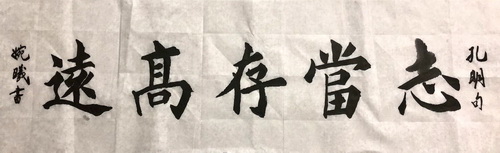 孔明句
志當存高遠
婉曦書